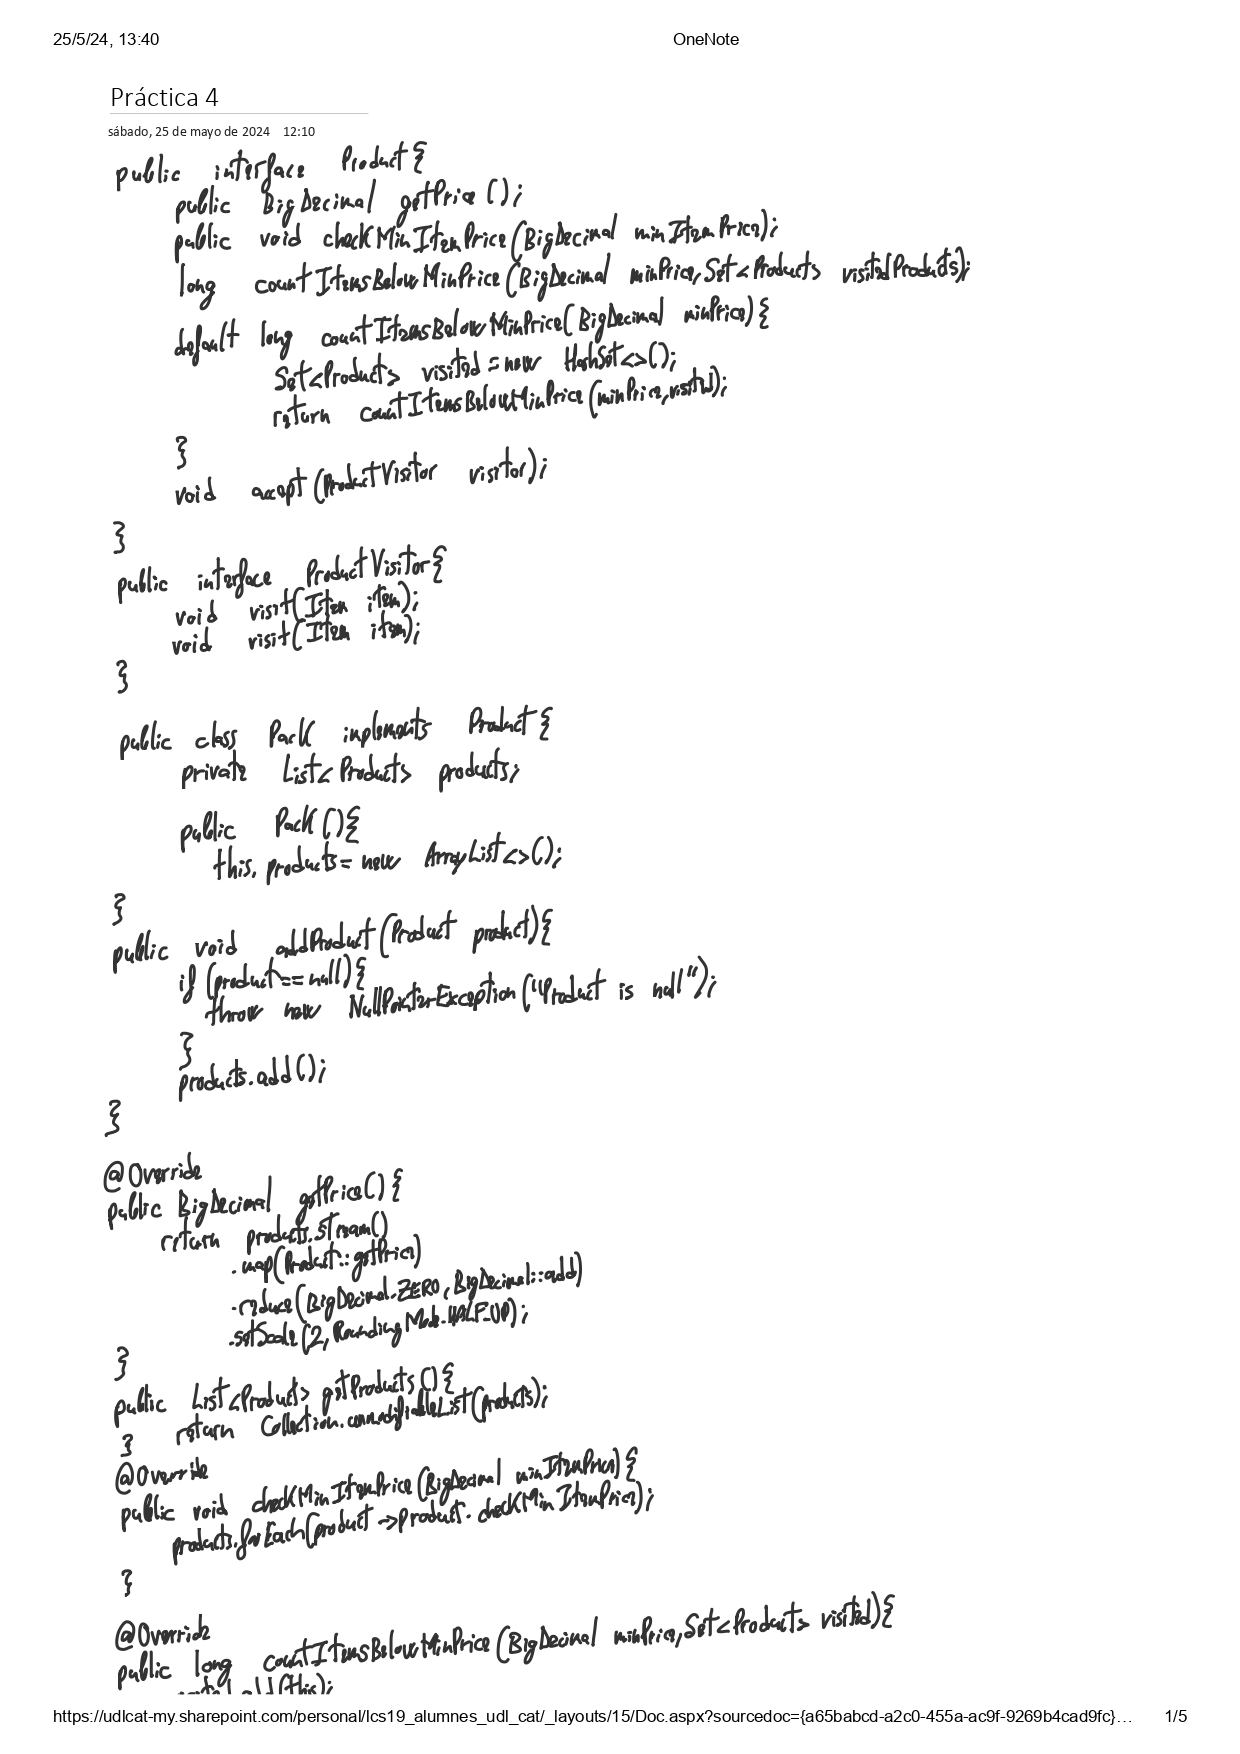 25/5/24, 13:40 OneNote
Práctica 4
sábado, 25 de mayo de 2024 12:10
public interface Product{
public BigDecimal getPrice();
public void checkMinItemPrice(BigDecimal minItemPrice);
long countItemsBelowMinPrice(BigDecimal minPrice, Set<Products> visitedProducts);
default long countItemsBelowMinPrice(BigDecimal minPrice){
Set<Products> visited = new HashSet<>();
return countItemsBelowMinPrice(minPrice, visited);
}
void accept(ProductVisitor visitor);
}
public interface ProductVisitor{
void visit(Item item);
void visit(Item item);
}
public class Pack implements Product{
private List<Products> products;
public Pack(){
this.products = new ArrayList<>();
}
public void addProduct(Product product){
if (product == null){
throw new NullPointerException("Product is null");
}
products.add();
}
@Override
public BigDecimal getPrice(){
return products.stream()
.map(Product::getPrice)
.reduce(BigDecimal.ZERO, BigDecimal::add)
.setScale(2, RoundingMode.HALF_UP);
}
public List<Products> getProducts(){
return Collection.unmodifiableList(products);
}
@Override
public void checkMinItemPrice(BigDecimal minItemPrice){
products.forEach(product -> product.checkMinItemPrice);
}
@Override
public long countItemsBelowMinPrice(BigDecimal minPrice, Set<Products> visited){
add(this);
https://udlcat-my.sharepoint.com/personal/lcs19_alumnes_udl_cat/_layouts/15/Doc.aspx?sourcedoc={a65babcd-a2c0-455a-ac9f-9269b4cad9fc}… 1/5